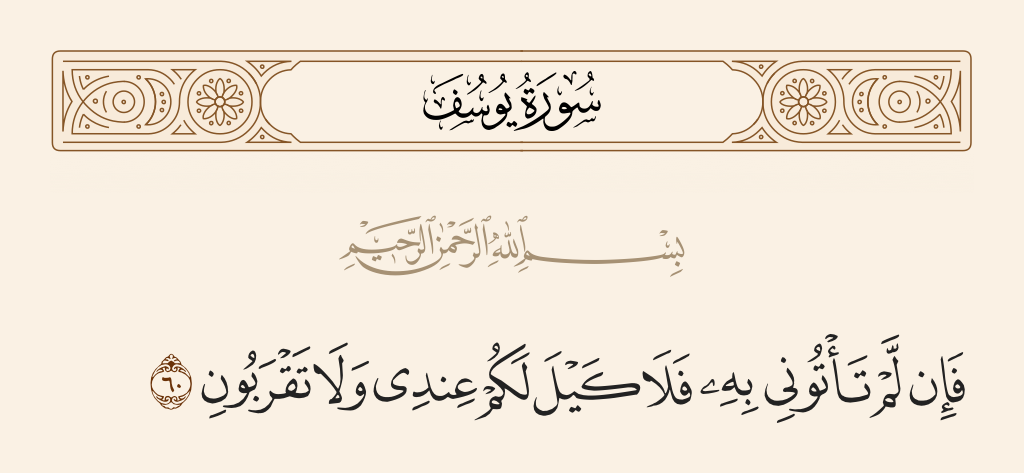 سُورَةُ يُوسُفَ
بِسْمِ ٱللَّهِ ٱلرَّحْمَٰنِ ٱلرَّحِيمِ
فَإِن لَّمْ تَأْتُونِى بِهِۦ فَلَا كَيْلَ لَكُمْ عِندِى وَلَا تَقْرَبُونِ ٦٠